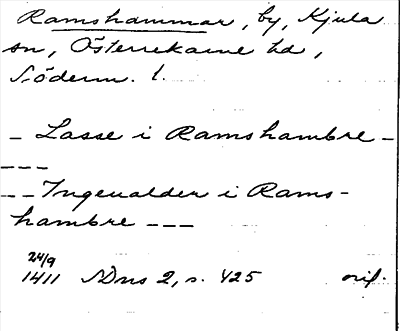 Ramshammar, by, Kjula
sn, Österrekarne hd,
Söderm. l.
_ Lasse i Ramshambre -
---
-- Ingeualder i Rams-
hambre ---
24/9
1411 SDns 2, s. 425 orig.